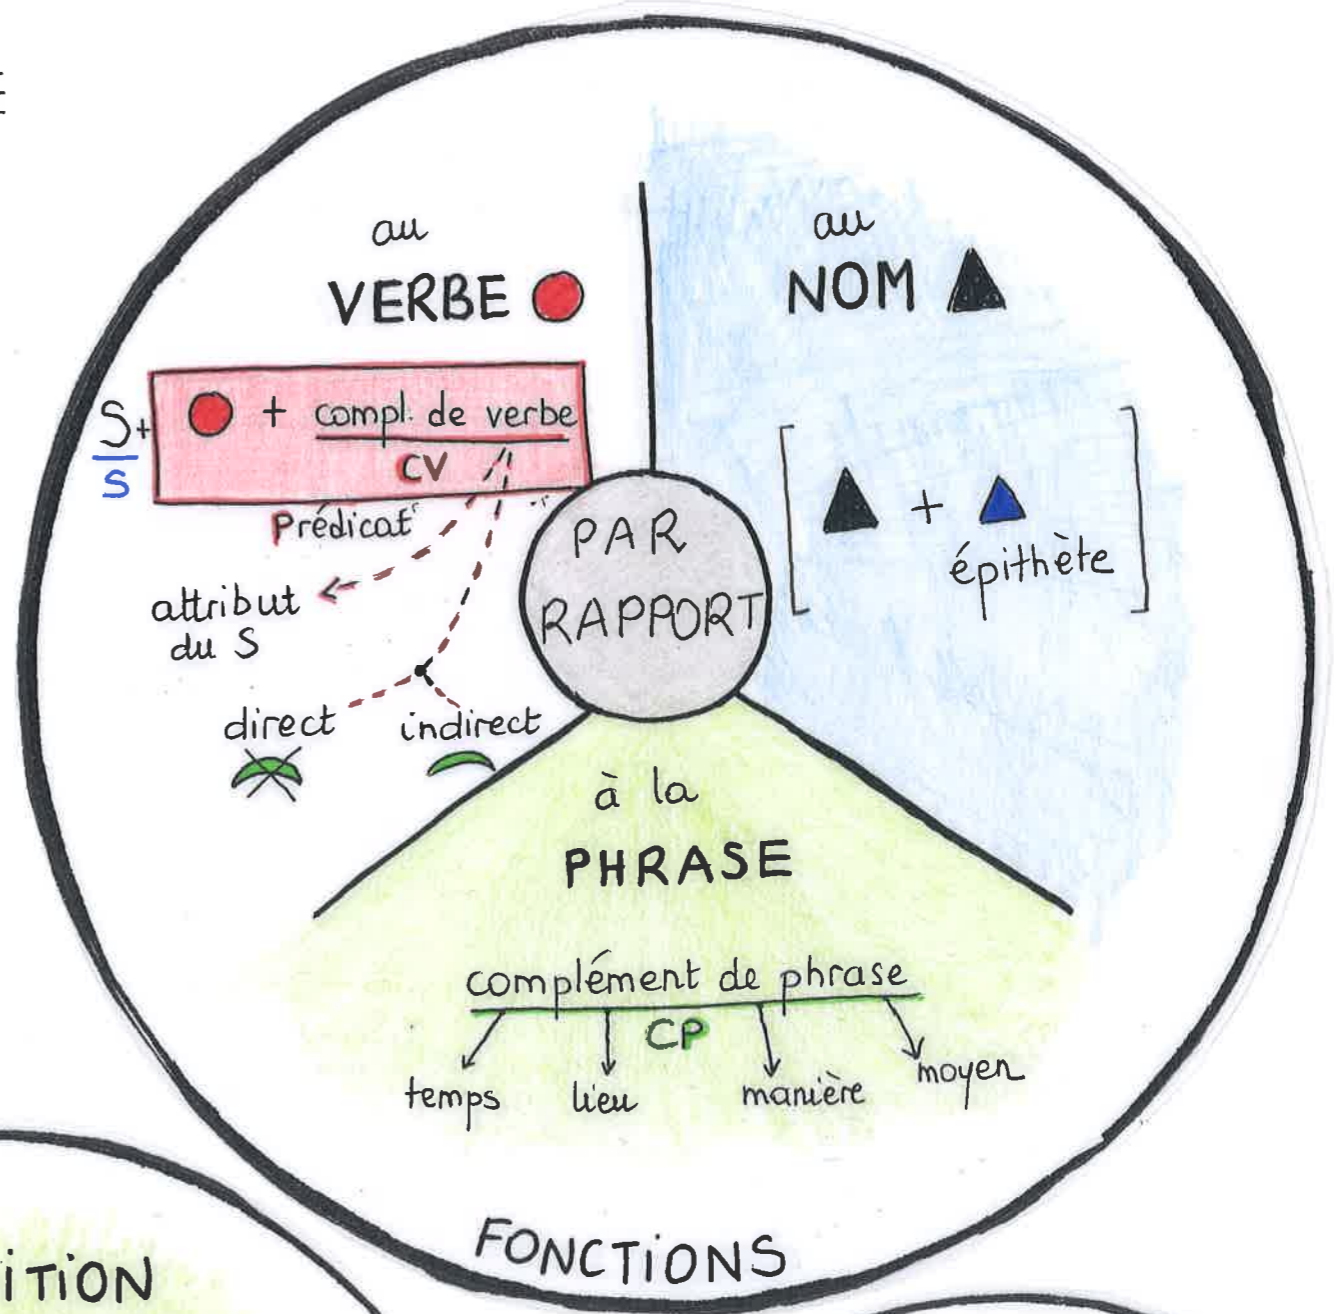 au
VERBE
S+
S
+ compl. de verbe
CV
Prédicat
attribut
du S
direct
indirect
au
NOM
+
épithète
PAR
RAPPORT
à la
PHRASE
complément de phrase
CP
temps
lieu
manière
moyen
FONCTIONS
iTiON